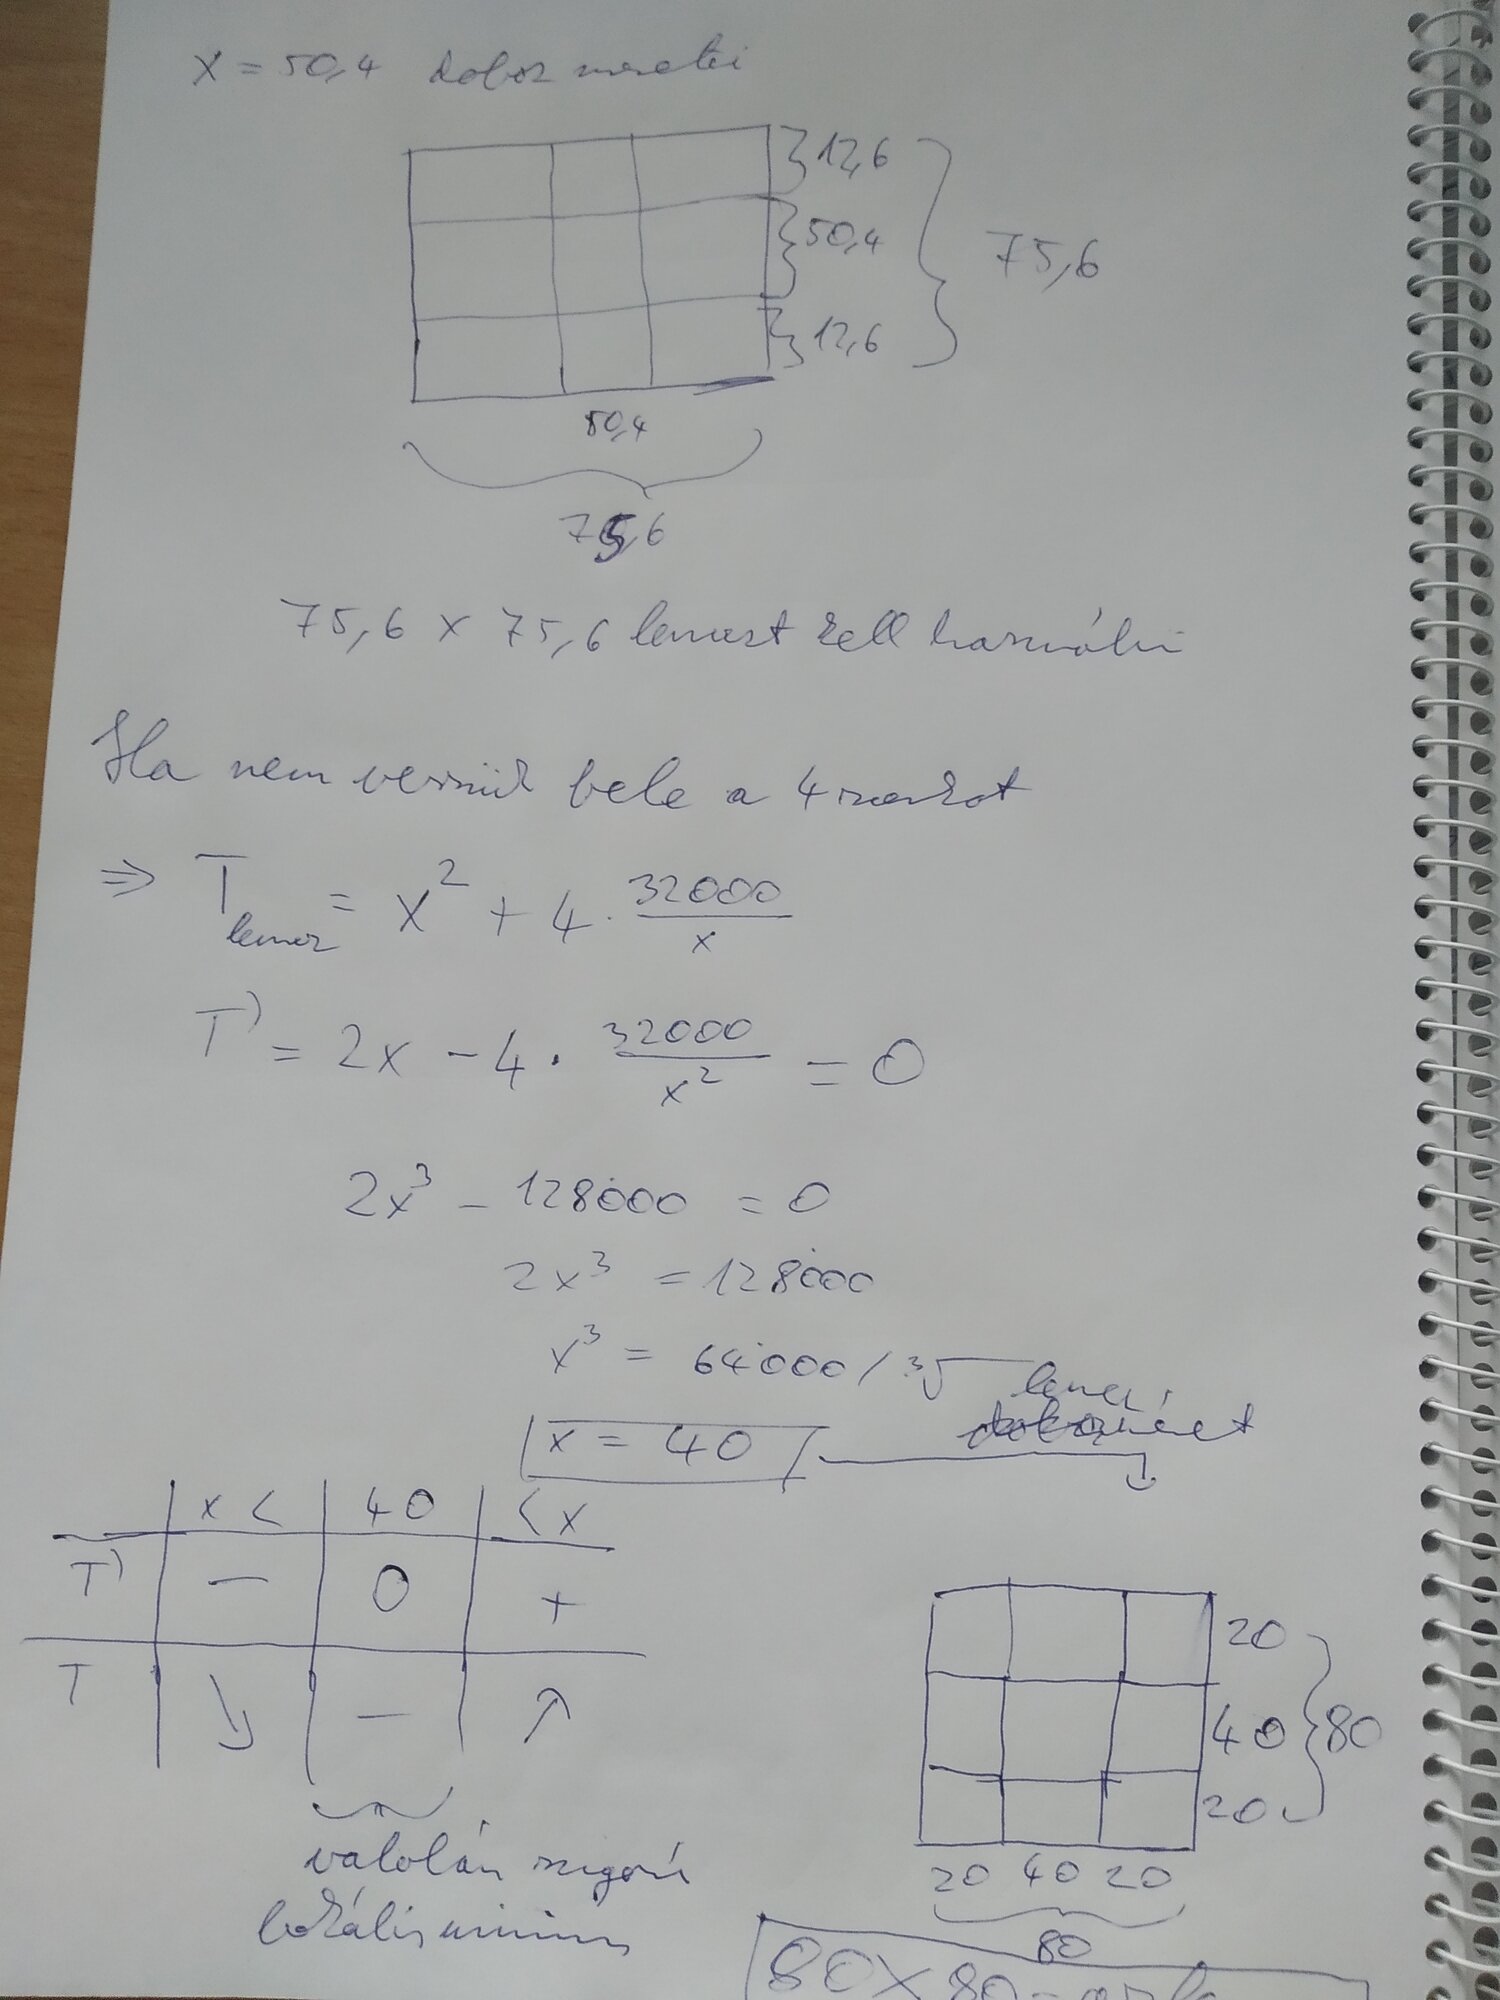 x = 50,4 doboz méretei
12,6
50,4
12,6
75,6
50,4
75,6
75,6 x 75,6 lemezt kell használni
Ha nem vesszük bele a 4 sarkot
⇒ T lemez = x² + 4 · 32000/x
T' = 2x − 4 · 32000/x² = 0
2x³ − 128000 = 0
2x³ = 128000
x³ = 64000 / ³√
lemez
méret
x = 40
x < 40 < x
T' − 0 +
T ↘ − ↗
valolán szigorú
lokális minimum
20
40
20
80
20 40 20
80
80x80-as